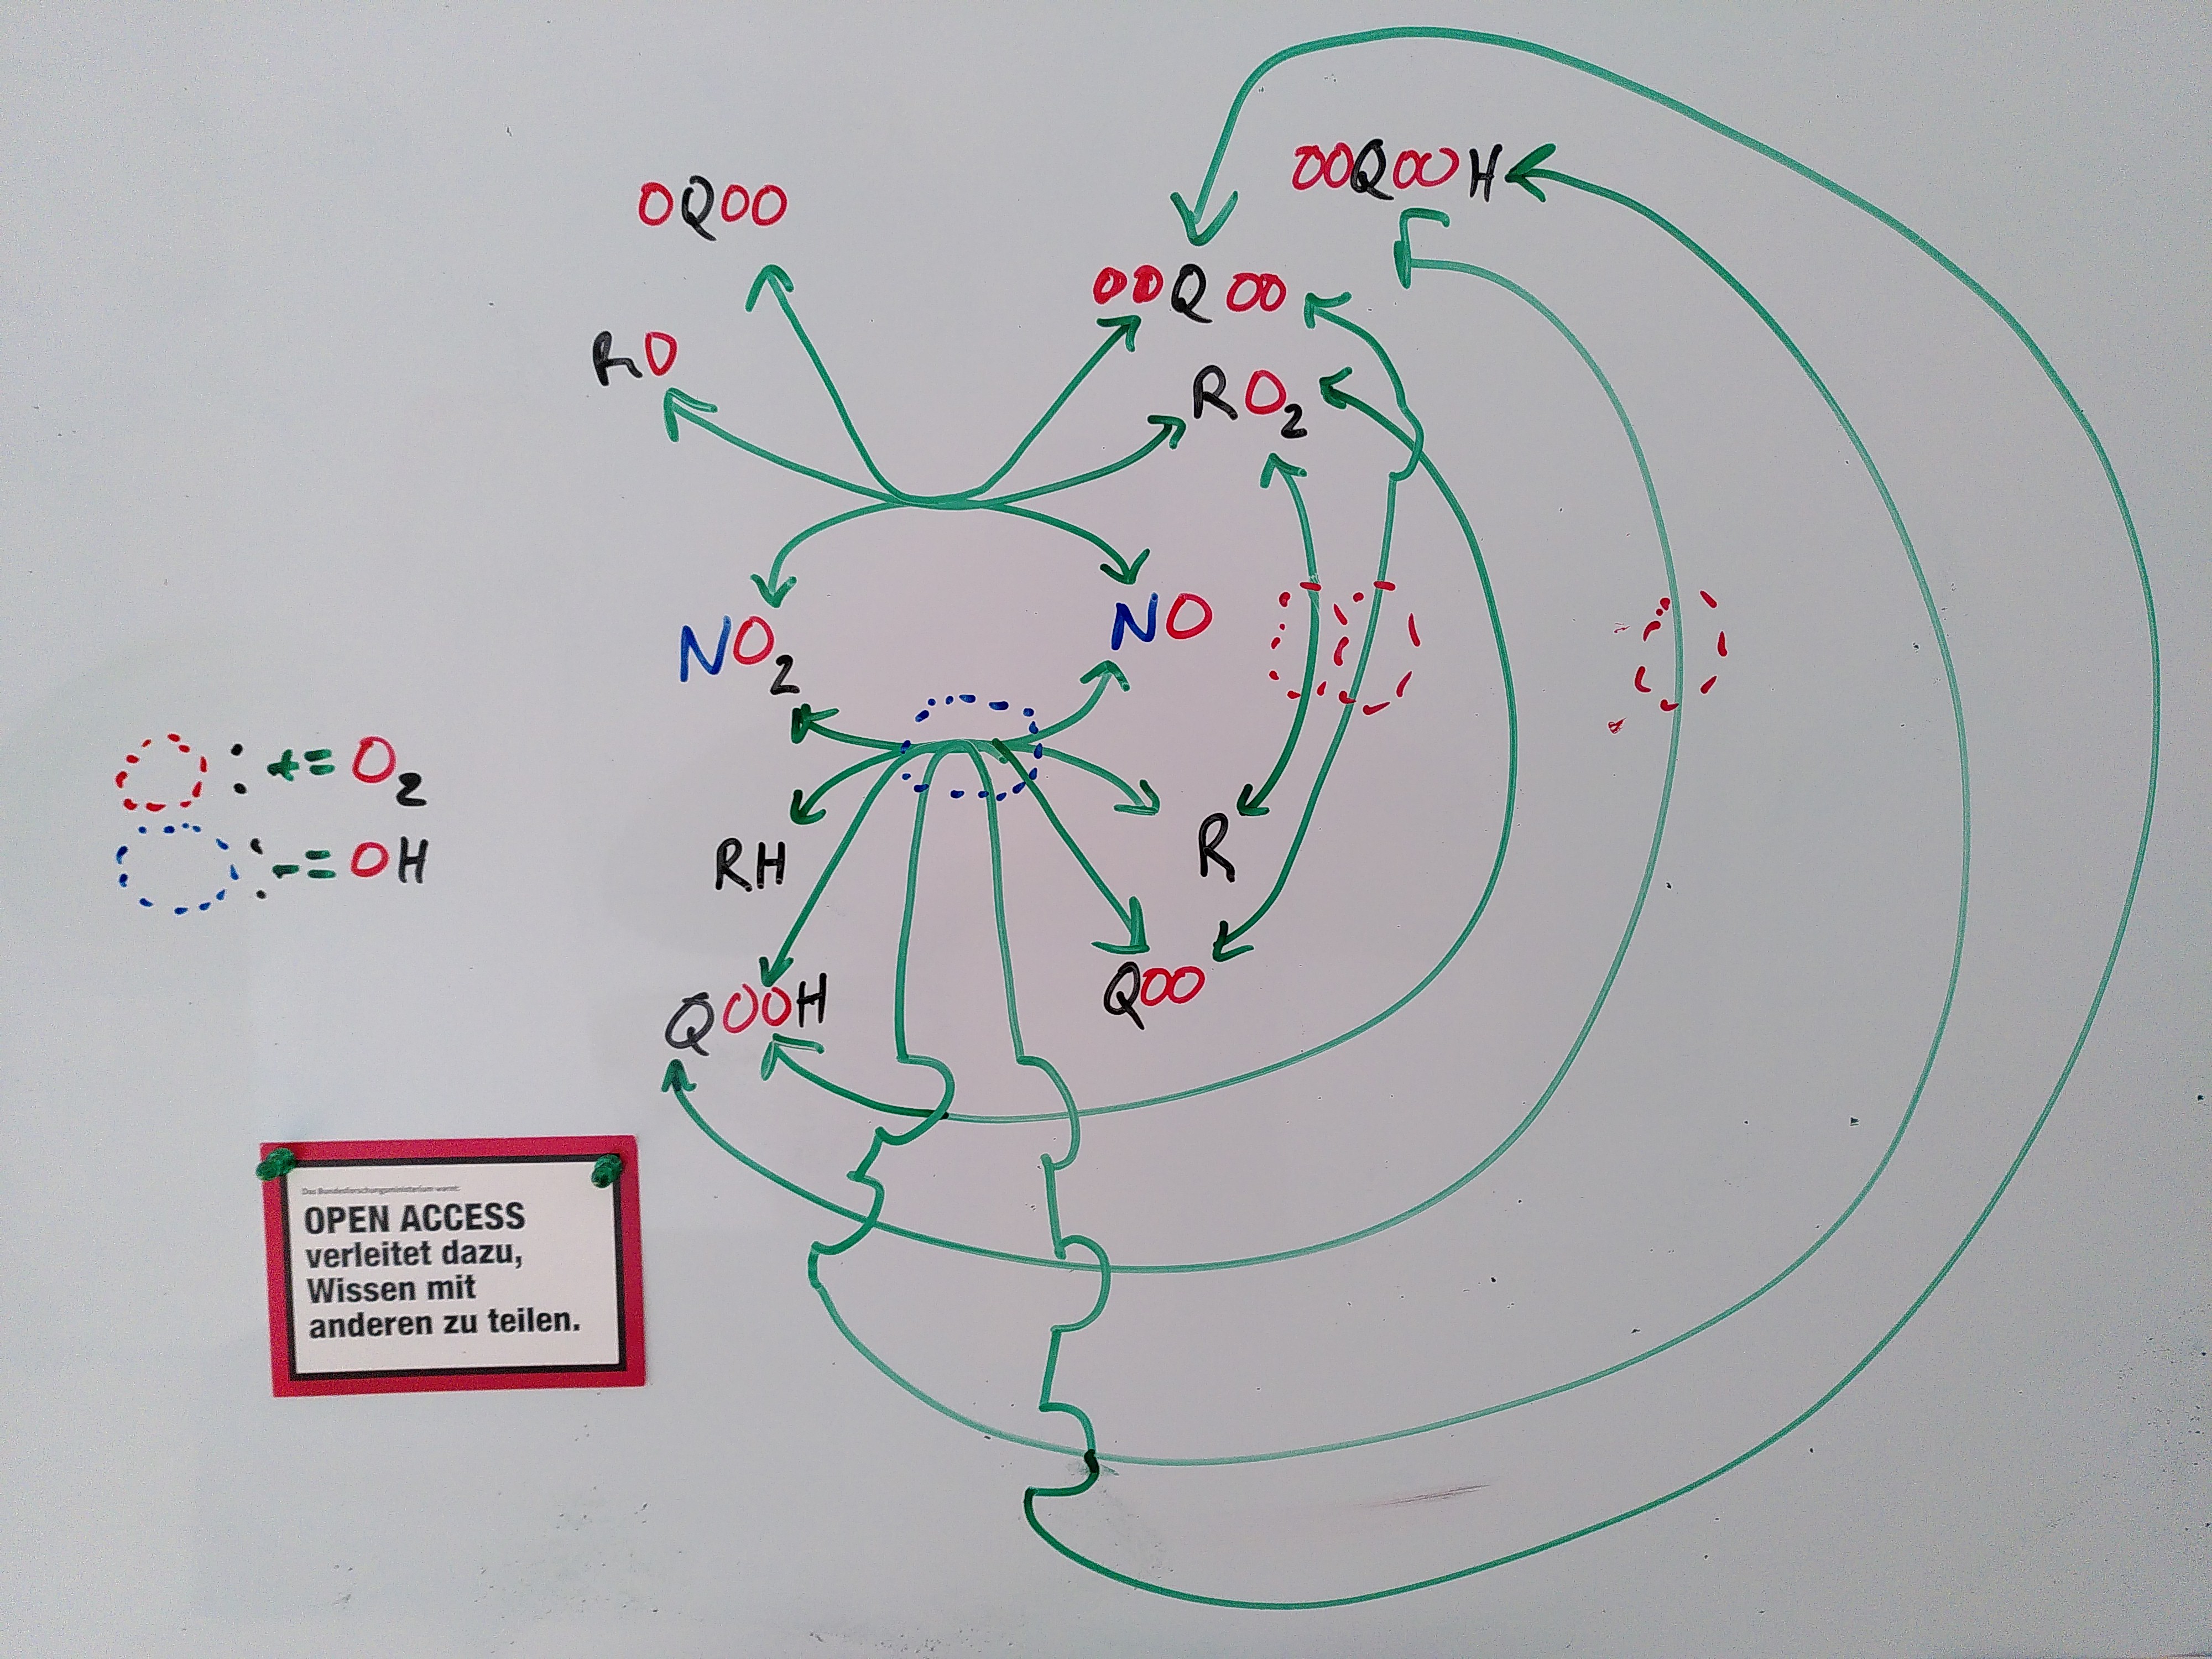 OOQOOH
OQOO
OOQOO
RO
RO2
NO
NO2
O2
:+=O2
:-=OH
RH
R
QOO
QOOH
Das Bundesforschungsministerium warnt:
OPEN ACCESS
verleitet dazu,
Wissen mit
anderen zu teilen.